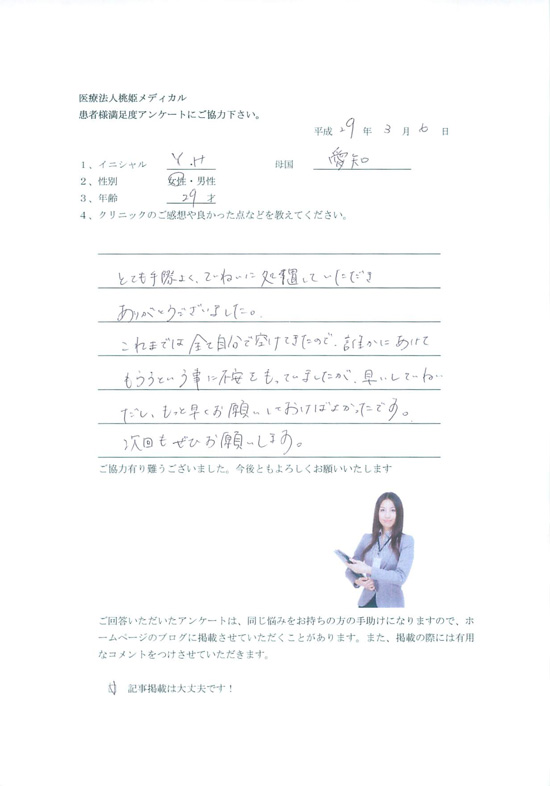 医療法人桃姫メディカル
患者様満足度アンケートにご協力下さい。
平成 29 年 3 月 6 日
1、イニシャル Y.H 母国 愛知
2、性別 女性・男性
3、年齢 29 才
4、クリニックのご感想や良かった点などを教えてください。
とても手際よく、ていねいに処置していただき
ありがとうございました。
これまでは全て自分で空けてきたので、誰かにあけて
もらうという事に不安をもっていましたが、早いしていねい
だし、もっと早くお願いしておけばよかったです。
次回もぜひお願いします。
ご協力有り難うございました。今後ともよろしくお願いいたします
ご回答いただいたアンケートは、同じ悩みをお持ちの方の手助けになりますので、ホ
ームページのブログに掲載させていただくことがあります。また、掲載の際には有用
なコメントをつけさせていただきます。
記事掲載は大丈夫です！